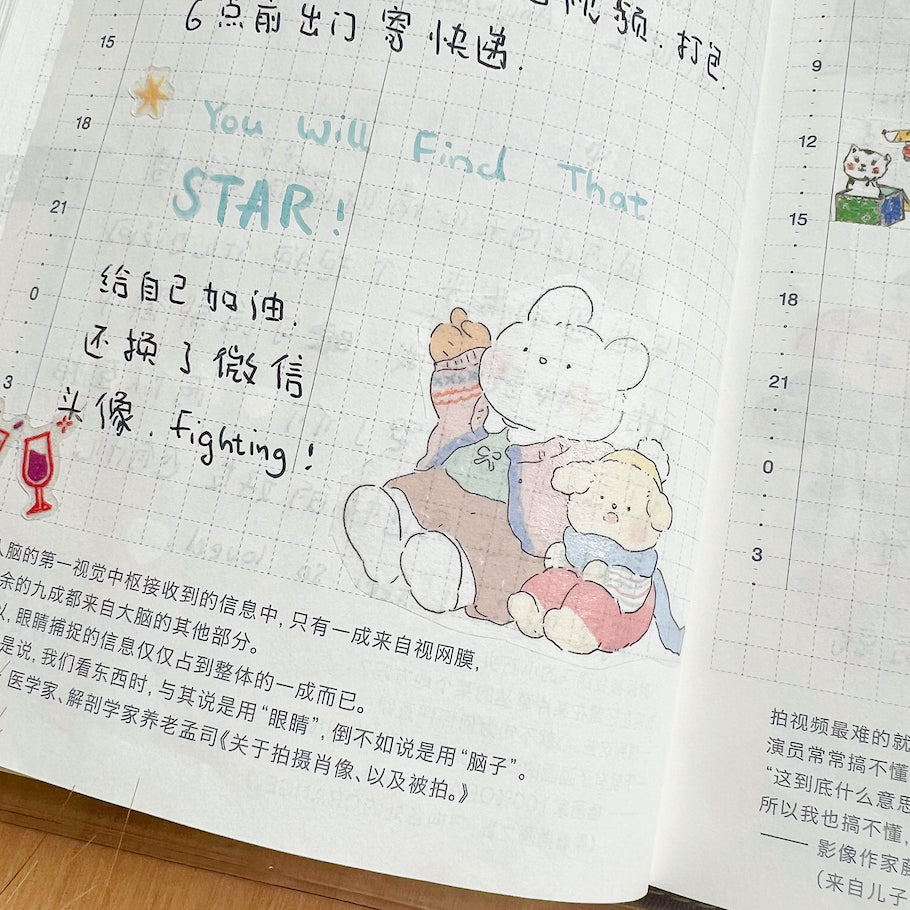 视频.打包.
6点前出门寄快递.
15
18
21
0
3
You Will Find That
STAR!
给自己加油.
还换了微信
头像.fighting!
脑的第一视觉中枢接收到的信息中,只有一成来自视网膜,
余的九成都来自大脑的其他部分。
以,眼睛捕捉的信息仅仅占到整体的一成而已。
是说,我们看东西时,与其说是用“眼睛”,倒不如说是用“脑子”。
医学家、解剖学家养老孟司《关于拍摄肖像、以及被拍。》
9
12
15
18
21
0
3
拍视频最难的就
演员常常搞不懂
“这到底什么意思
所以我也搞不懂,
—— 影像作家
(来自儿子